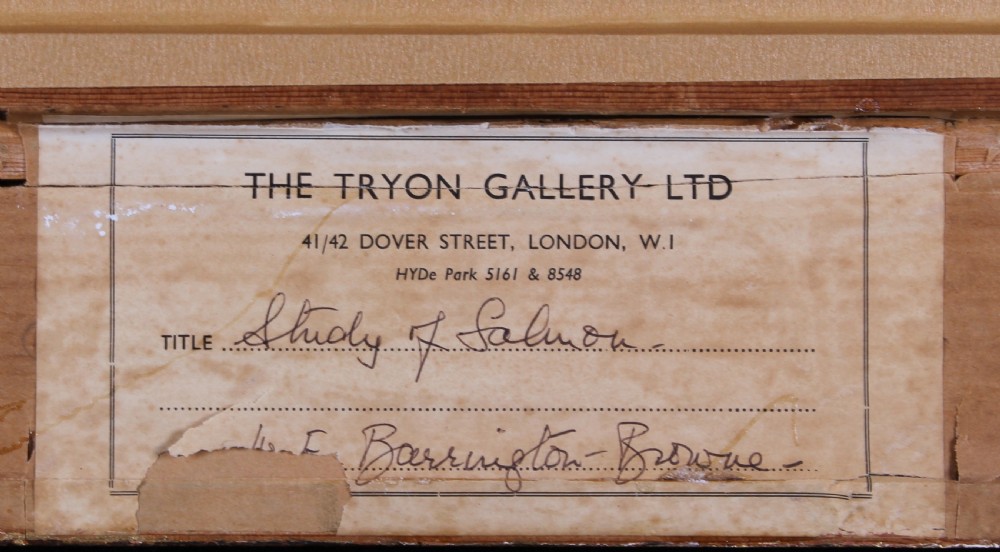 THE TRYON GALLERY LTD
41/42 DOVER STREET, LONDON, W.1
HYDe Park 5161 & 8548
TITLE Study of Salmon
W. E. Barrington-Browne